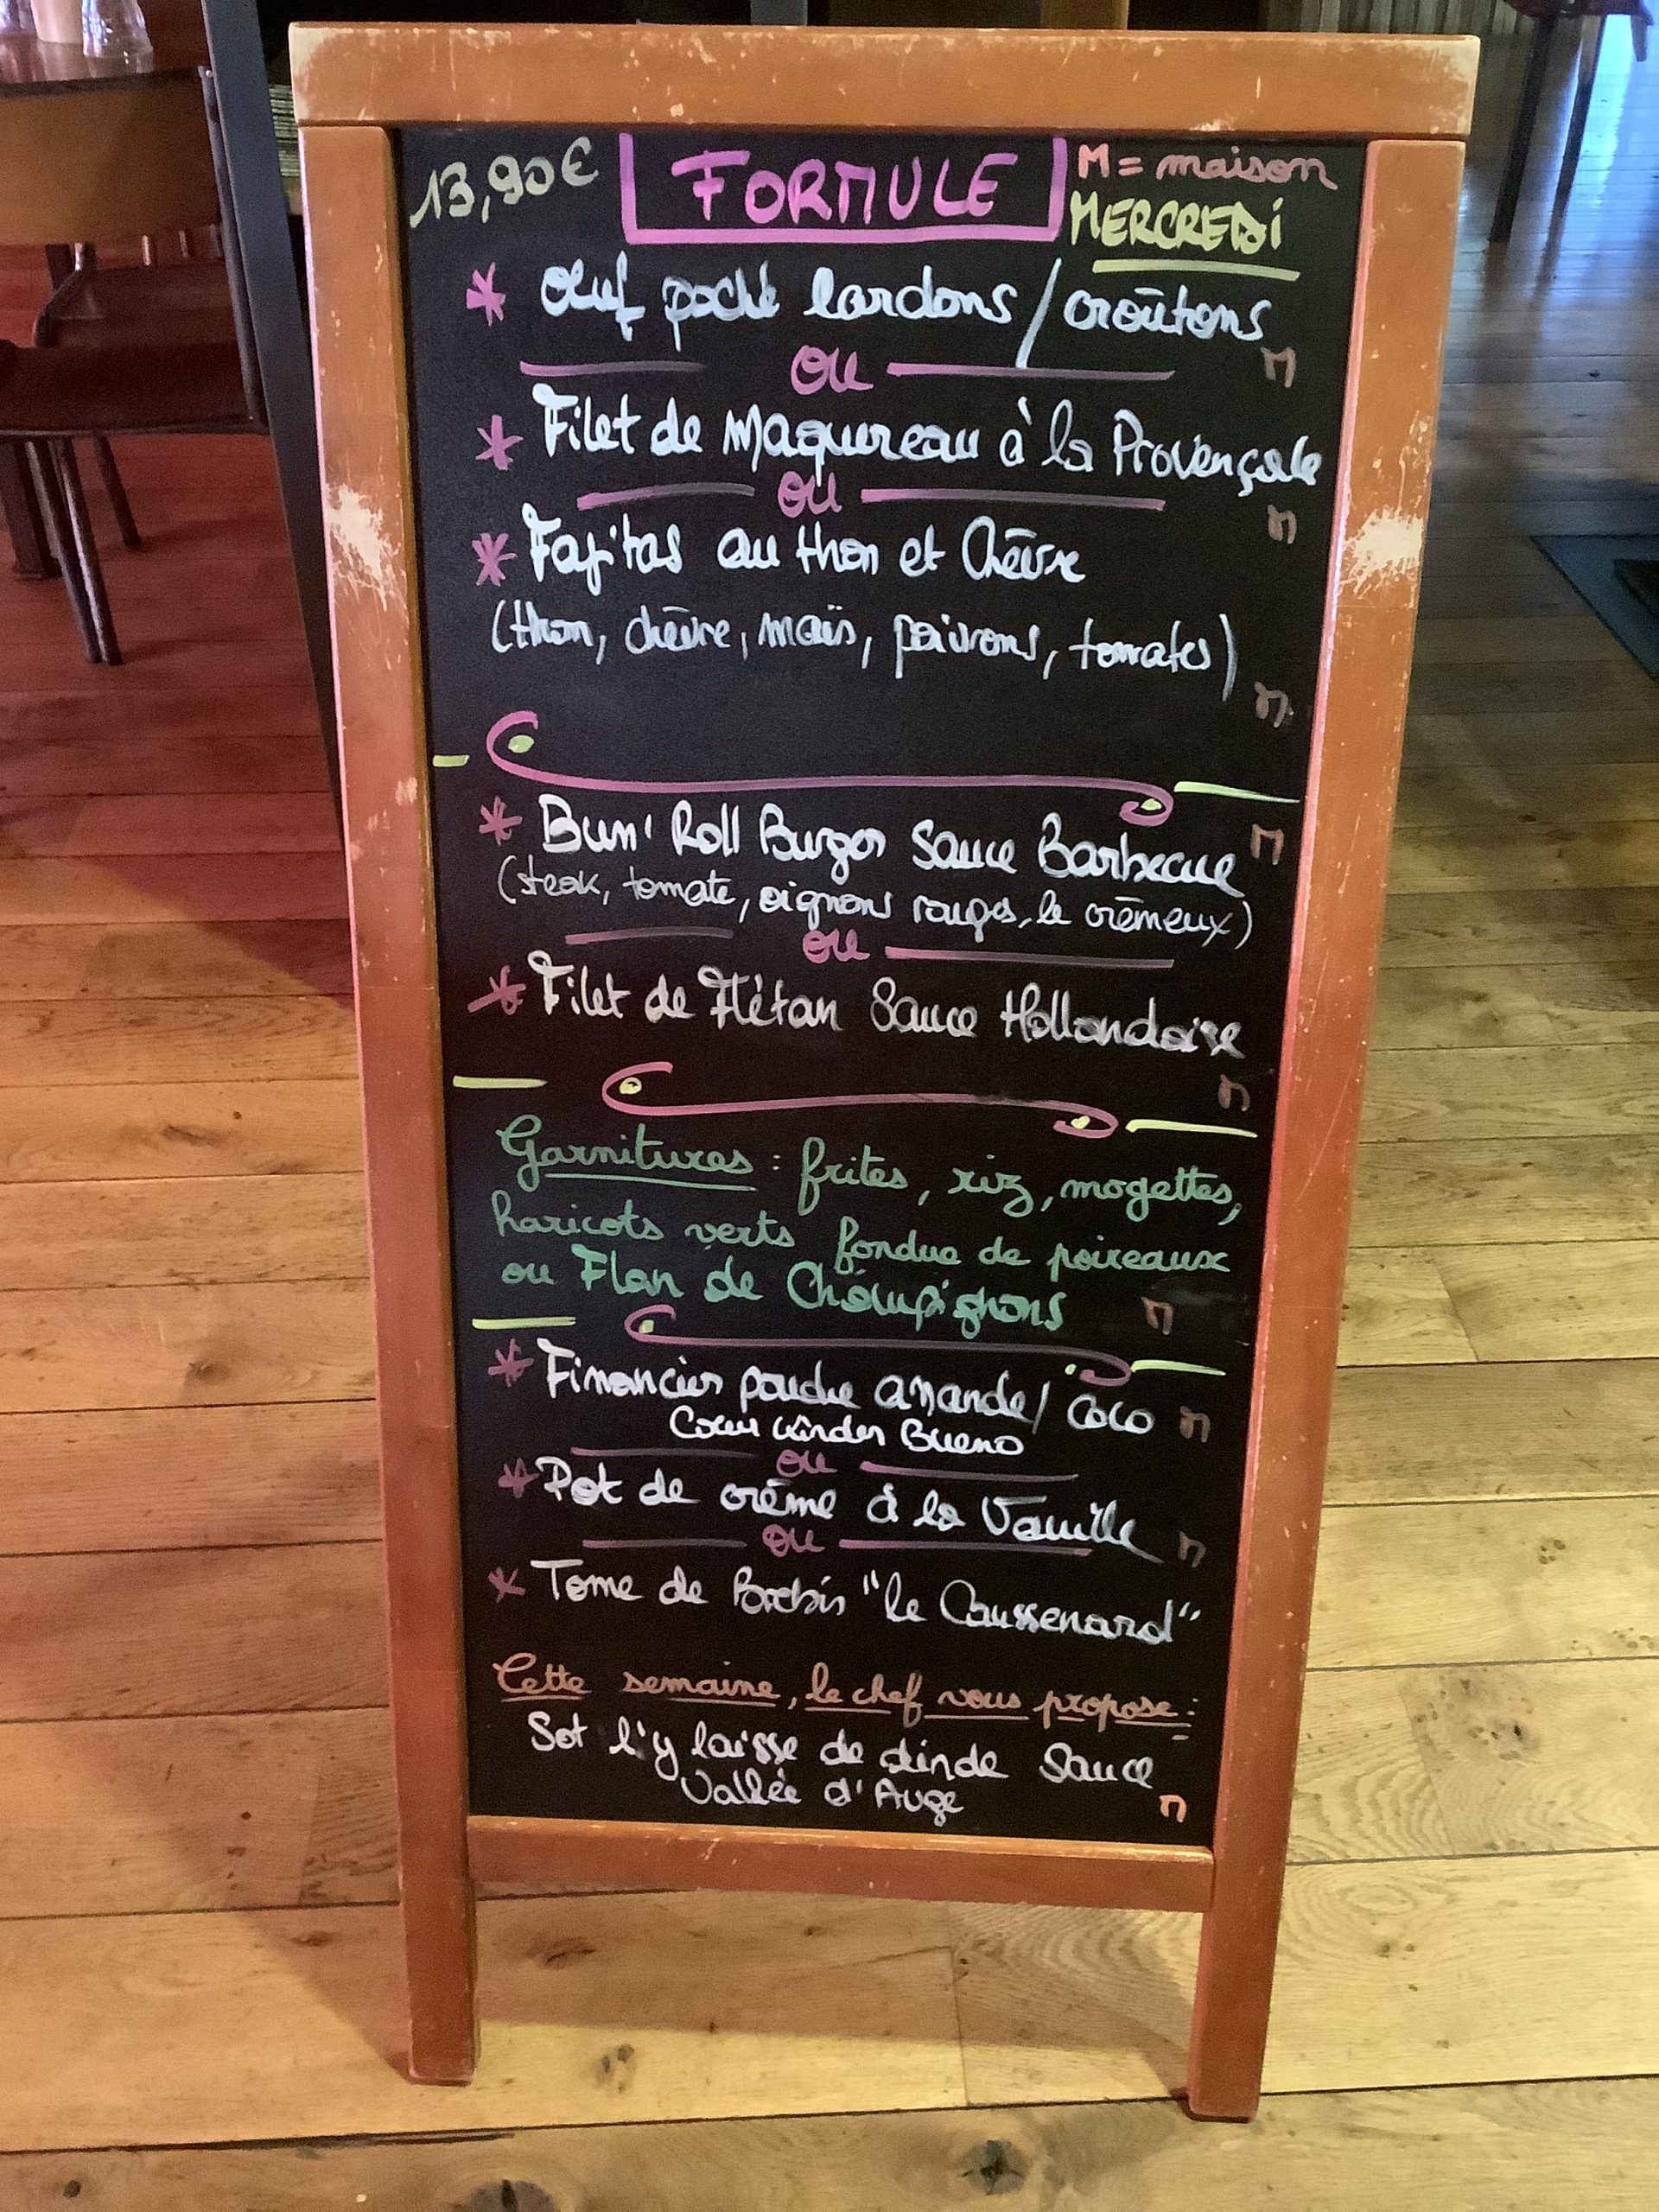 13,90€ FORMULE M = maison
MERCREDi
* Oeuf poché lardons / croûtons
OU M
* Filet de Maquereau à la Provençale
OU M
* Fajitas au thon et Chèvre
(thon, chèvre, maïs, poivrons, tomates)
M
* Bun' Roll Burger Sauce Barbecue M
(steak, tomate, oignons rouges, le crémeux)
OU
* Filet de Flétan Sauce Hollandaise
M
Garnitures : frites, riz, mogettes,
haricots verts fondue de poireaux
ou Flan de Champignons M
* Financier poudre amande / Coco M
Coeur Kinder Bueno
OU
* Pot de crème à la Vanille M
OU
* Tome de Brebis "le Caussenard"
Cette semaine, le chef vous propose :
Sot l'y laisse de dinde Sauce
Vallée d'Auge M